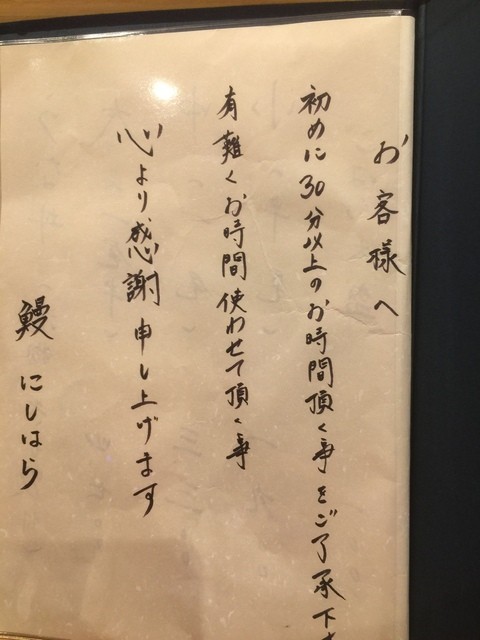 お客様へ
初めに30分以上のお時間頂く事をご了承下さ
有難くお時間使わせて頂く事
心より感謝申し上げます
鰻にしはら